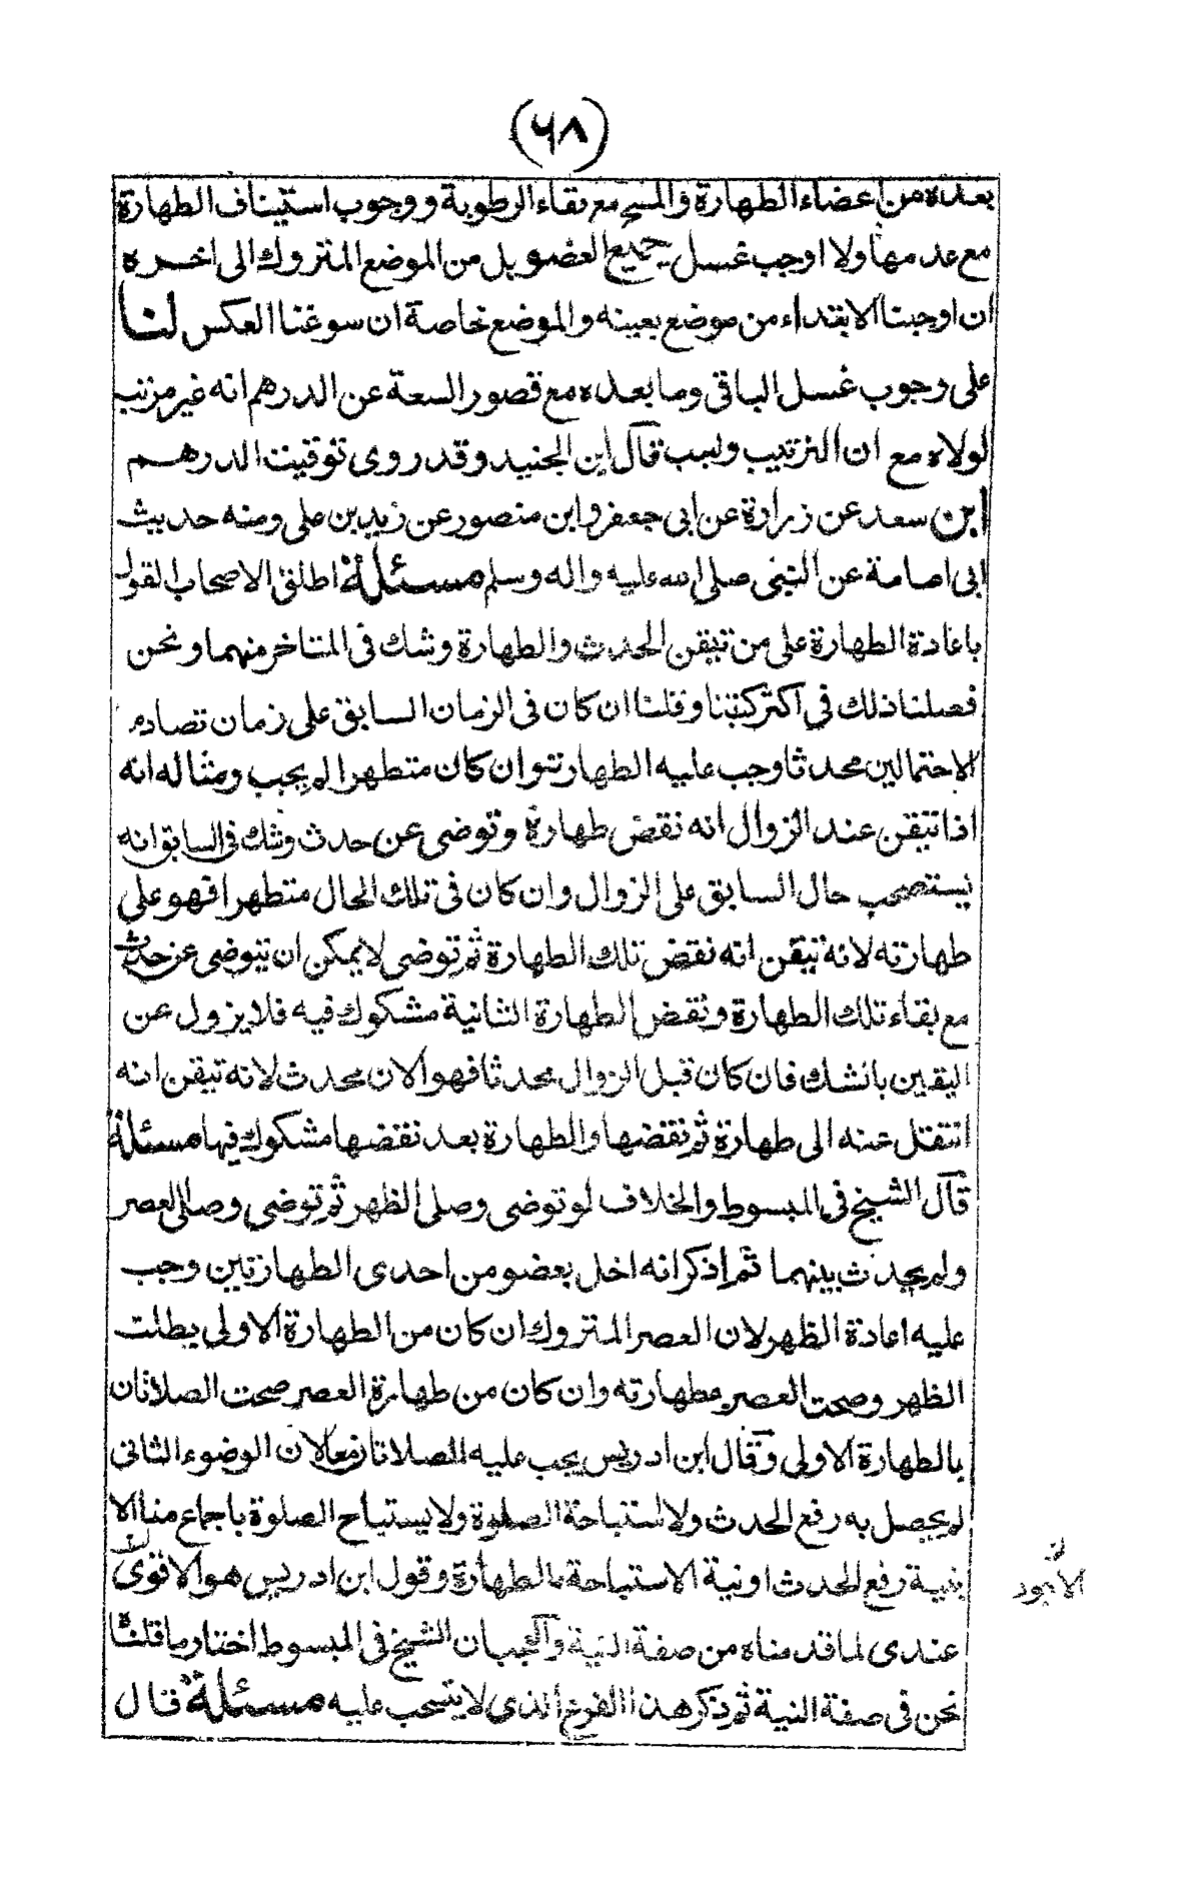 (٦٨)
بعده من اعضاء الطهارة والمسح مع بقاء الرطوبة ووجوب استيناف الطهارة
مع عدمها ولا اوجب غسل جميع العضو بل من الموضع المتروك الى اخره
ان اوجبنا الابتداء من موضع بعينه والموضع خاصة ان سوغنا العكس لنا
على وجوب غسل الباقى وما بعده مع قصور السعة عن الدرهم انه غير مرتب
لولاه مع ان الترتيب وجب قال ابن الجنيد وقد روى توقيت الدرهم
ابن سعد عن زرارة عن ابى جعفر وابن منصور عن زيد بن على ومنه حديث
ابى امامة عن النبى صلى الله عليه واله وسلم مسئلة اطلق الاصحاب القول
باعادة الطهارة على من تيقن الحدث والطهارة وشك فى المتاخر منهما ونحن
فصلنا ذلك فى اكثر كتبنا وقلنا ان كان فى الزمان السابق على زمان تصادم
الاحتمالين محدثا وجب عليه الطهارة وان كان متطهرا لم يجب ومثاله انه
اذا تيقن عند الزوال انه نقض طهارة وتوضى عن حدث وشك فى السابق انه
يستصحب حال السابق على الزوال وان كان فى تلك الحال متطهرا فهو على
طهارته لانه تيقن انه نقض تلك الطهارة ثم توضى لا يمكن ان يتوضى عن حدث
مع بقاء تلك الطهارة ونقض الطهارة الثانية مشكوك فيه فلا يزول عن
اليقين بالشك فان كان قبل الزوال محدثا فهو الان محدث لانه تيقن انه
انتقل عنه الى طهارة ثم نقضها والطهارة بعد نقضها مشكوك فيها مسئلة
قال الشيخ فى المبسوط والخلاف لو توضى وصلى الظهر ثم توضى وصلى العصر
ولم يحدث بينهما ثم اذكر انه اخل بعضو من احدى الطهارتين وجب
عليه اعادة الظهر لان العصر المتروك ان كان من الطهارة الاولى بطلت
الظهر وصحت العصر بطهارته وان كان من طهارة العصر صحت الصلاتان
بالطهارة الاولى وقال ابن ادريس يجب عليه الصلاتان معا لان الوضوء الثانى
لم يحصل به رفع الحدث ولا استباحة الصلوة ولا يستباح الصلوة باجماع منا الا
بنية رفع الحدث او نية الاستباحة بالطهارة وقول ابن ادريس هو الاقوى
عندى لما قدمناه من صفة النية والعجب ان الشيخ فى المبسوط اختار ما قلناه
نحن فى صفة النية ثم ذكر هذا الفرع الذى لا ينسحب عليه مسئلة قال